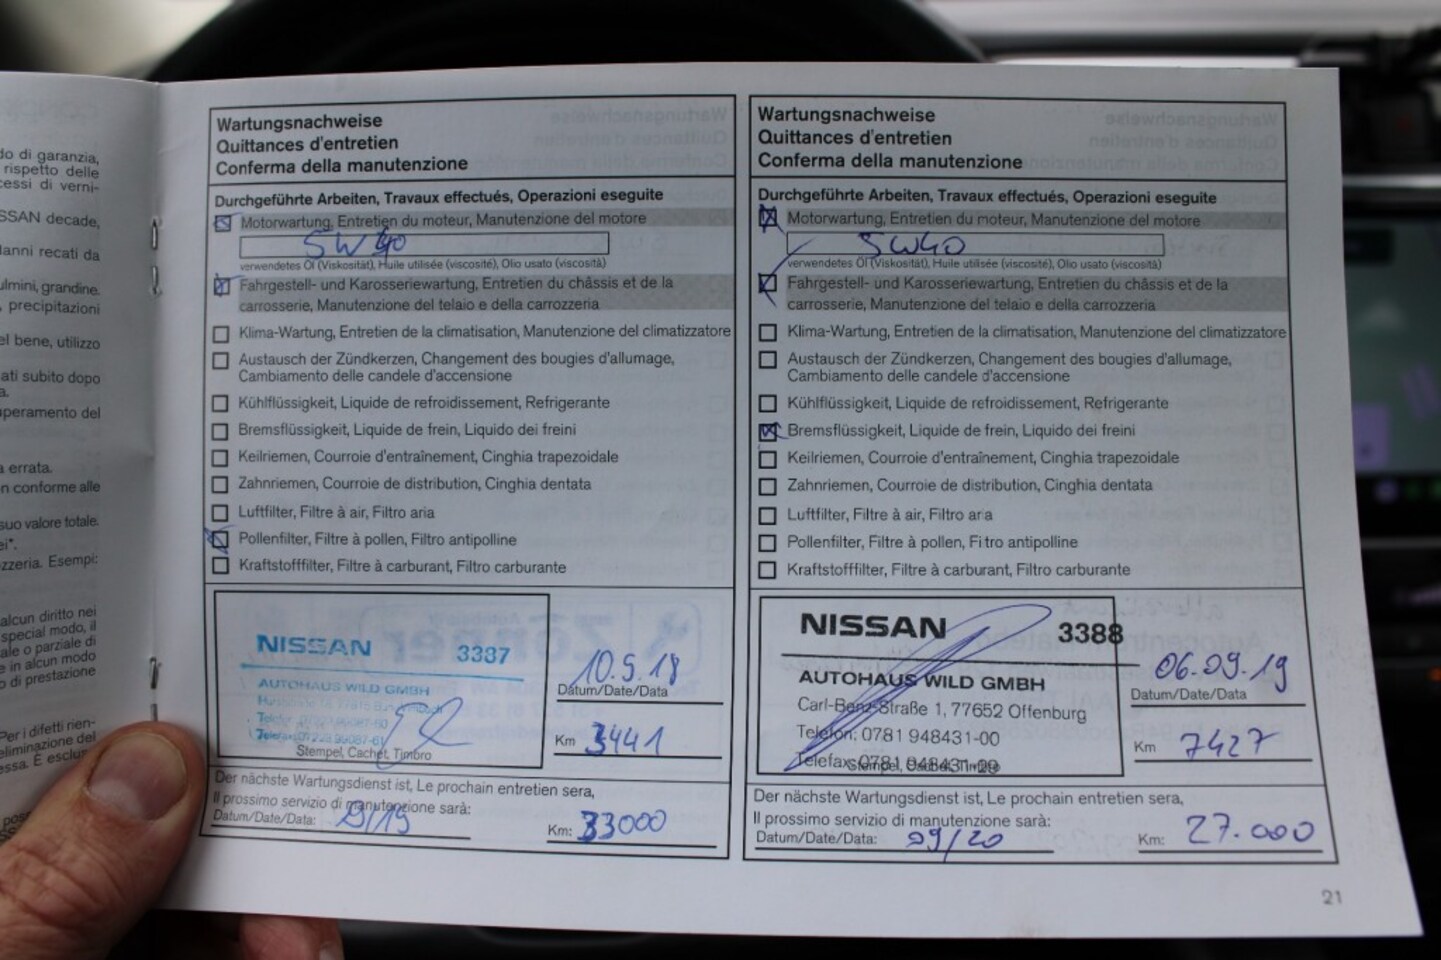 do di garanzia,
rispetto delle
cessi di verni-
SSAN decade,
danni recati da
ulmini, grandine.
precipitazioni
el bene, utilizzo
ati subito dopo
a.
uperamento del
a errata.
n conforme alle
suo valore totale.
ei".
zzeria. Esempi:
alcun diritto nei
special modo, il
ale o parziale di
e in alcun modo
o di prestazione
Per i difetti rien-
eliminazione del
essa. È esclus
Wartungsnachweise
Quittances d'entretien
Conferma della manutenzione
Durchgeführte Arbeiten, Travaux effectués, Operazioni eseguite
Motorwartung, Entretien du moteur, Manutenzione del motore
5W40
verwendetes Öl (Viskosität), Huile utilisée (viscosité), Olio usato (viscosità)
Fahrgestell- und Karosseriewartung, Entretien du châssis et de la
carrosserie, Manutenzione del telaio e della carrozzeria
Klima-Wartung, Entretien de la climatisation, Manutenzione del climatizzatore
Austausch der Zündkerzen, Changement des bougies d'allumage,
Cambiamento delle candele d'accensione
Kühlflüssigkeit, Liquide de refroidissement, Refrigerante
Bremsflüssigkeit, Liquide de frein, Liquido dei freini
Keilriemen, Courroie d'entraînement, Cinghia trapezoidale
Zahnriemen, Courroie de distribution, Cinghia dentata
Luftfilter, Filtre à air, Filtro aria
Pollenfilter, Filtre à pollen, Filtro antipolline
Kraftstofffilter, Filtre à carburant, Filtro carburante
NISSAN 3387
AUTOHAUS WILD GMBH
Stempel, Cachet, Timbro
10.9.18
Datum/Date/Data
Km 3441
Der nächste Wartungsdienst ist, Le prochain entretien sera,
Il prossimo servizio di manutenzione sarà:
Datum/Date/Data: 9/19 Km: 33000
Wartungsnachweise
Quittances d'entretien
Conferma della manutenzione
Durchgeführte Arbeiten, Travaux effectués, Operazioni eseguite
Motorwartung, Entretien du moteur, Manutenzione del motore
5W40
verwendetes Öl (Viskosität), Huile utilisée (viscosité), Olio usato (viscosità)
Fahrgestell- und Karosseriewartung, Entretien du châssis et de la
carrosserie, Manutenzione del telaio e della carrozzeria
Klima-Wartung, Entretien de la climatisation, Manutenzione del climatizzatore
Austausch der Zündkerzen, Changement des bougies d'allumage,
Cambiamento delle candele d'accensione
Kühlflüssigkeit, Liquide de refroidissement, Refrigerante
Bremsflüssigkeit, Liquide de frein, Liquido dei freini
Keilriemen, Courroie d'entraînement, Cinghia trapezoidale
Zahnriemen, Courroie de distribution, Cinghia dentata
Luftfilter, Filtre à air, Filtro aria
Pollenfilter, Filtre à pollen, Filtro antipolline
Kraftstofffilter, Filtre à carburant, Filtro carburante
NISSAN 3388
AUTOHAUS WILD GMBH
Carl-Benz-Straße 1, 77652 Offenburg
Telefon: 0781 948431-00
Telefax: 0781 948431-29
Stempel, Cachet, Timbro
06.09.19
Datum/Date/Data
Km 7427
Der nächste Wartungsdienst ist, Le prochain entretien sera,
Il prossimo servizio di manutenzione sarà:
Datum/Date/Data: 09/20 Km: 27.000
21